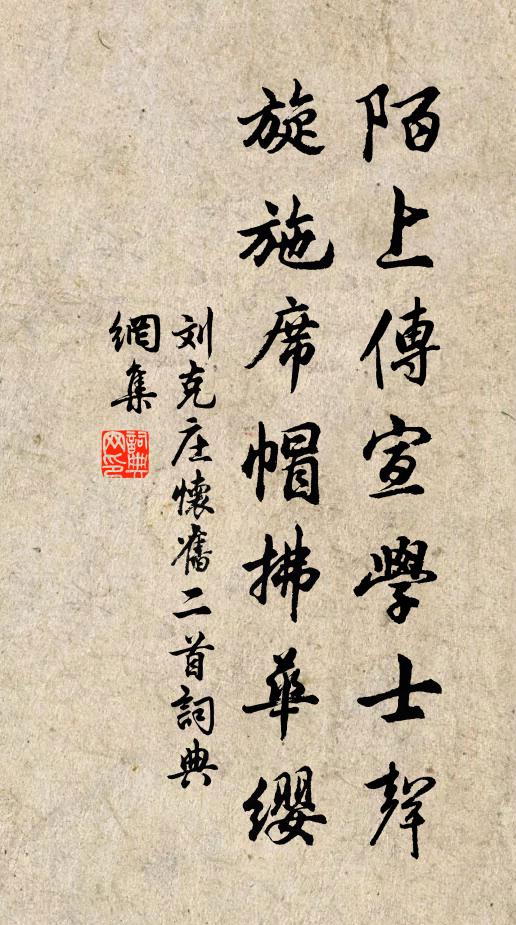 陌上傳宣學士聲
旋施席帽拂華纓
刘克庄懷舊二首詞典
網集
詞典
网印